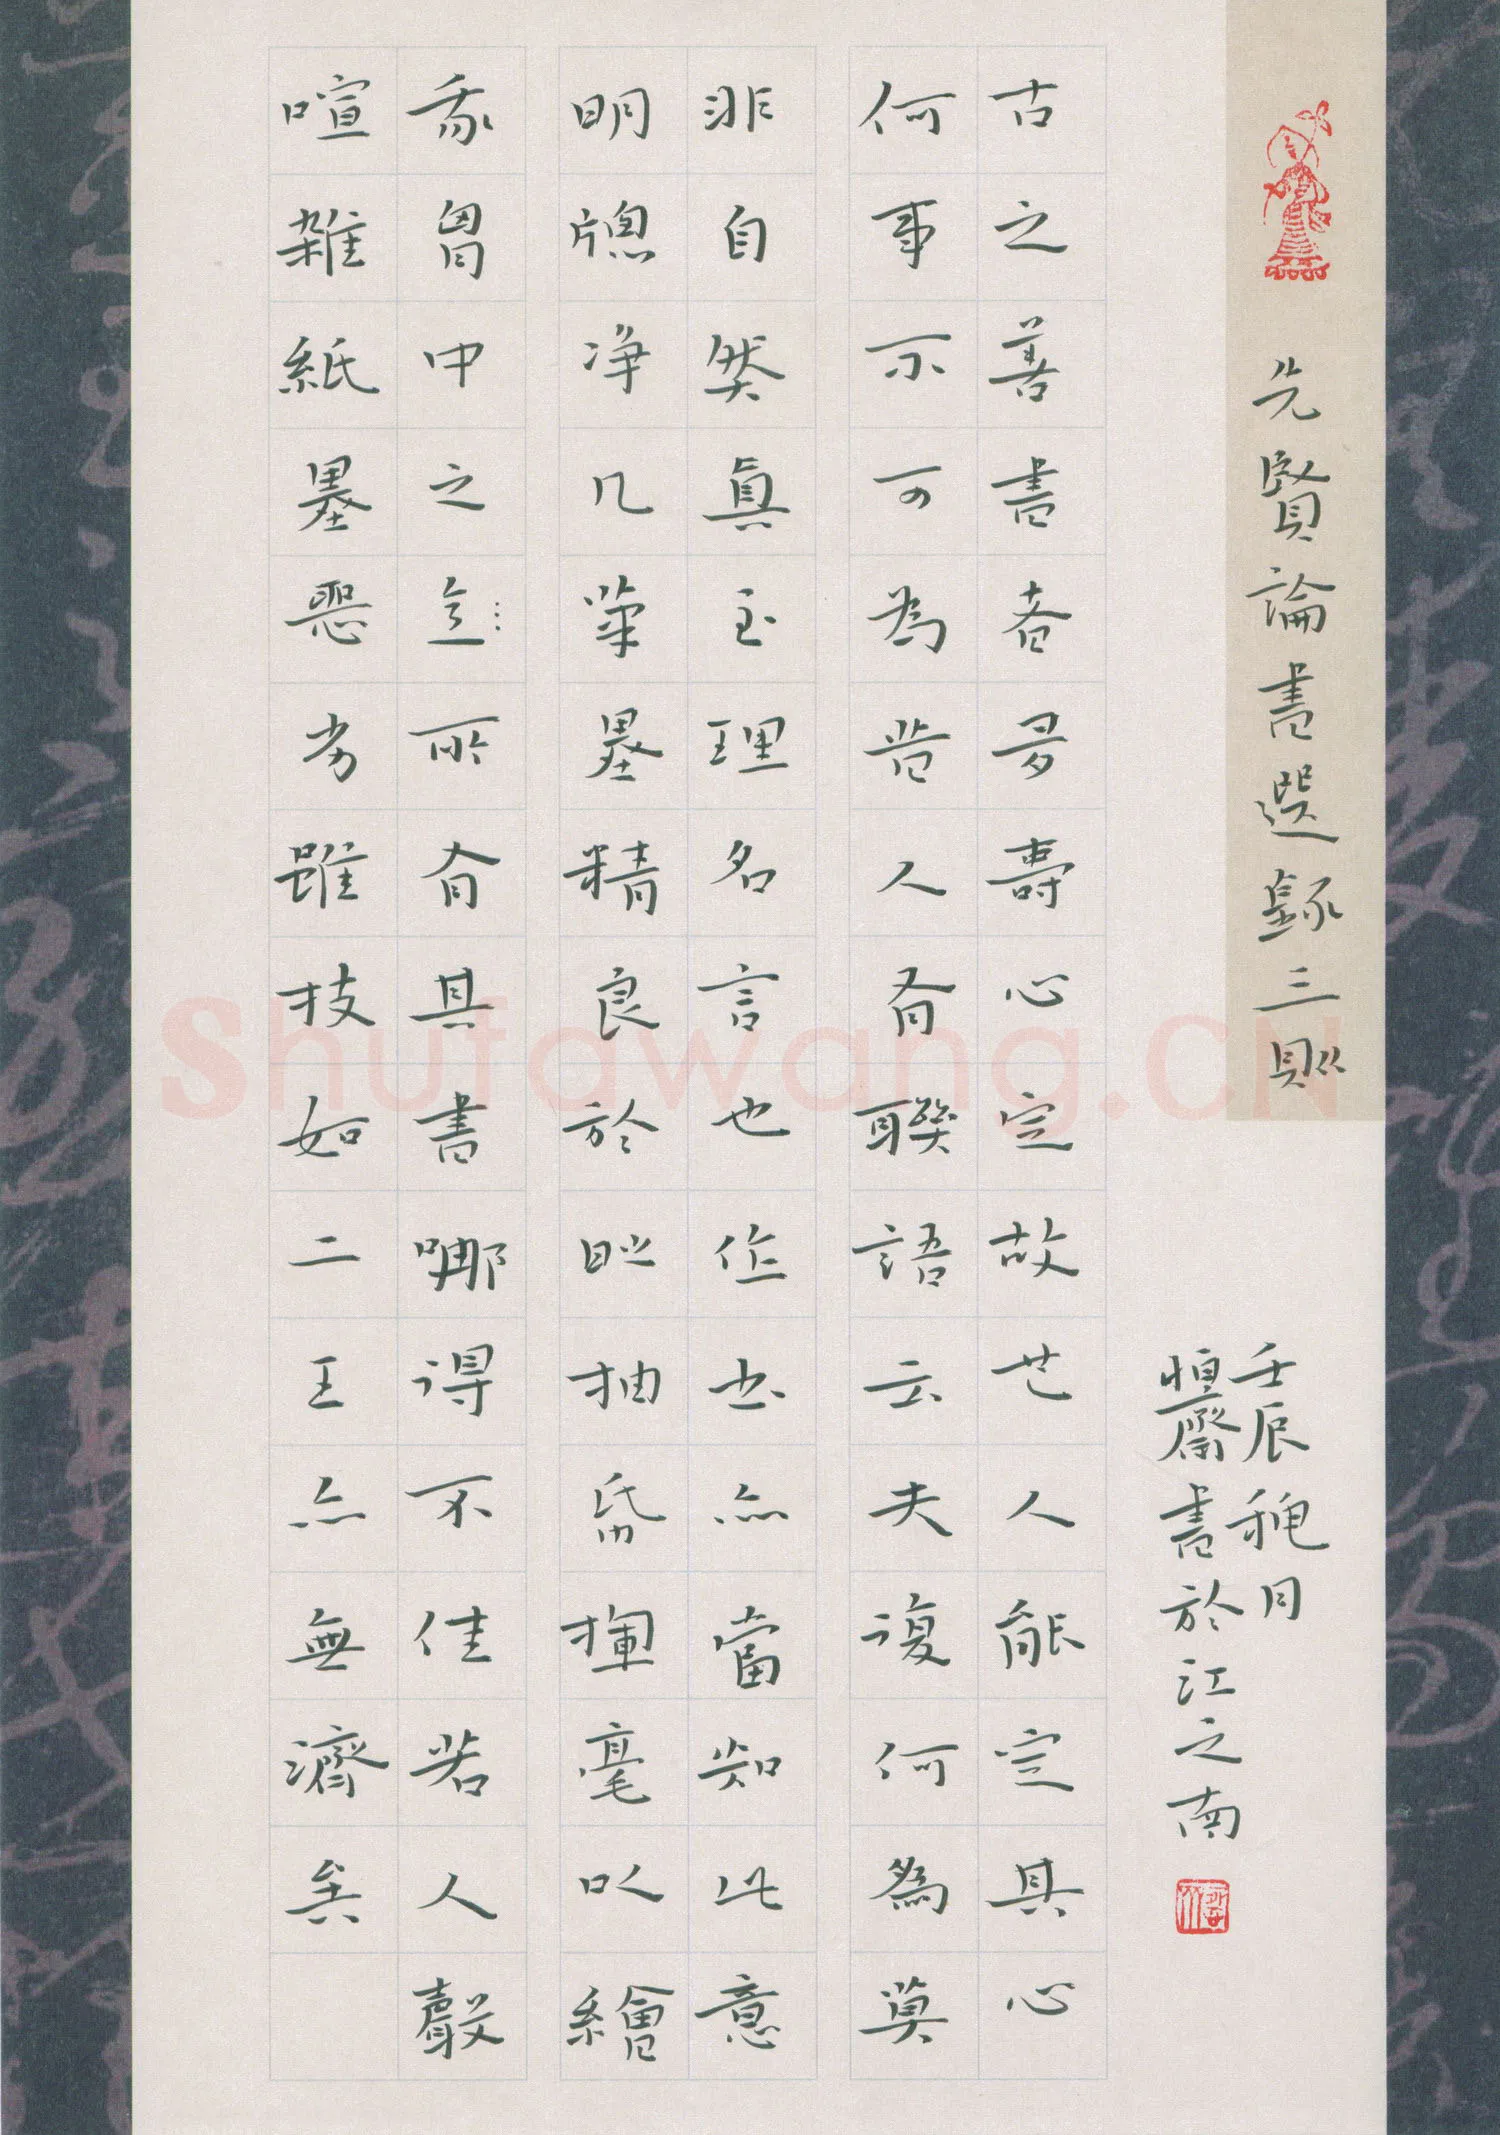 先賢論書選録三則
壬辰穐月
恒齋書於江之南
古之善書者多壽心定故也人能定其心
何事不可為昔人有聯語云夫復何為莫
非自然真至理名言也作書亦當知此意
明牕净几筆墨精良於時抽帋揮毫以繪
我胷中之所有其書哪得不佳若人聲
喧雜紙墨惡劣雖技如二王亦無濟矣
Shufawang.CN